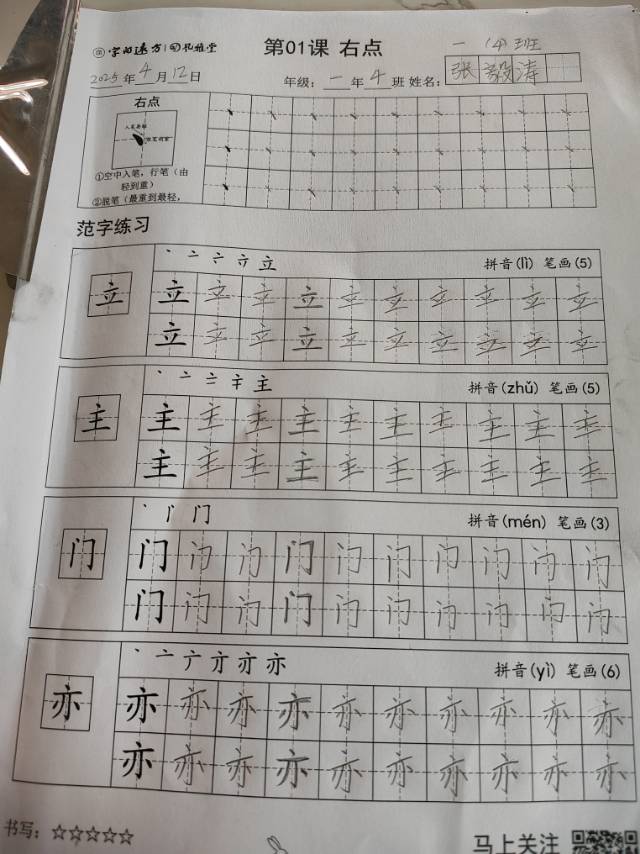 字的远方 第01课 右点 一 (4)班
2025年4月12日 年级:一年4班 姓名:张毅涛
右点
①空中入笔,行笔(由
轻到重)
②脱笔(最重到最轻,
范字练习
丶 亠 立 拼音(lì) 笔画(5)
立 立 立 立 立 立 立 立 立 立 立
立 立 立 立 立 立 立 立 立 立
丶 亠 主 拼音(zhǔ) 笔画(5)
主 主 主 主 主 主 主 主 主 主 主
主 主 主 主 主 主 主 主 主 主
丶 门 拼音(mén) 笔画(3)
门 门 门 门 门 门 门 门 门 门 门
门 门 门 门 门 门 门 门 门 门
丶 亠 亦 拼音(yì) 笔画(6)
亦 亦 亦 亦 亦 亦 亦 亦 亦 亦 亦
亦 亦 亦 亦 亦 亦 亦 亦 亦 亦
书写:☆☆☆☆☆ 马上关注